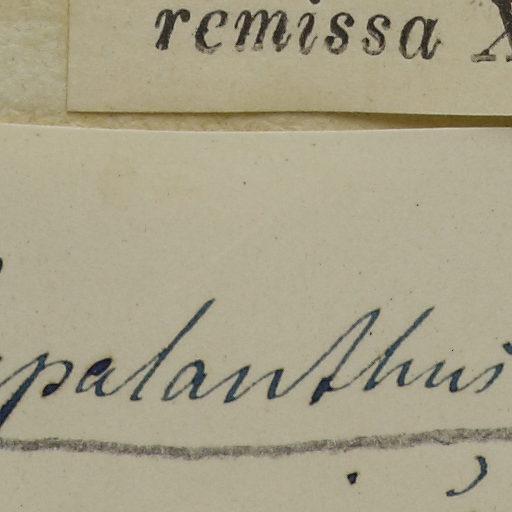 remissa X
palanthus